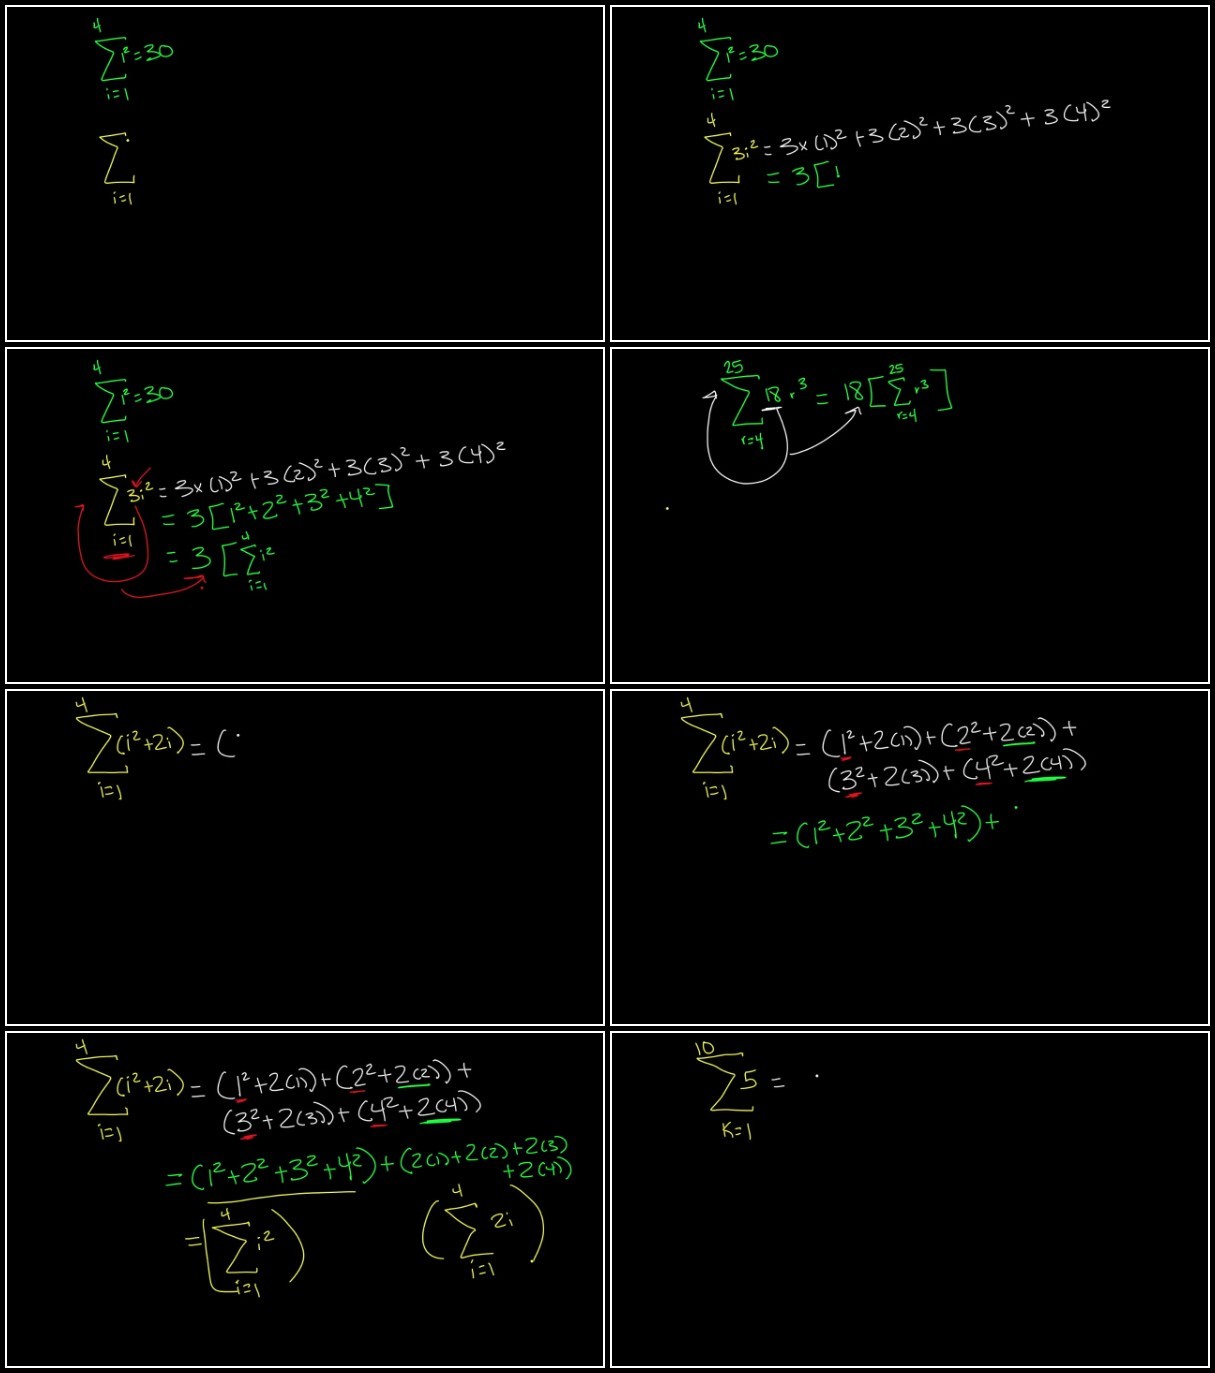 4
∑ i² = 30
i=1
∑
i=1
4
∑ i² = 30
i=1
4
∑ 3i² = 3×(1)² + 3(2)² + 3(3)² + 3(4)²
i=1
= 3[1
4
∑ i² = 30
i=1
4
∑ 3i² = 3×(1)² + 3(2)² + 3(3)² + 3(4)²
i=1
= 3[1² + 2² + 3² + 4²]
4
= 3[∑ i²
i=1
25 25
∑ 18·r³ = 18[∑ r³]
r=4 r=4
4
∑ (i²+2i) = (
i=1
4
∑ (i²+2i) = (1²+2(1)) + (2²+2(2)) +
i=1
(3²+2(3)) + (4²+2(4))
= (1² + 2² + 3² + 4²) +
4
∑ (i²+2i) = (1²+2(1)) + (2²+2(2)) +
i=1
(3²+2(3)) + (4²+2(4))
= (1² + 2² + 3² + 4²) + (2(1) + 2(2) + 2(3)
+ 2(4))
4 4
= (∑ i²) (∑ 2i)
i=1 i=1
10
∑ 5 =
K=1